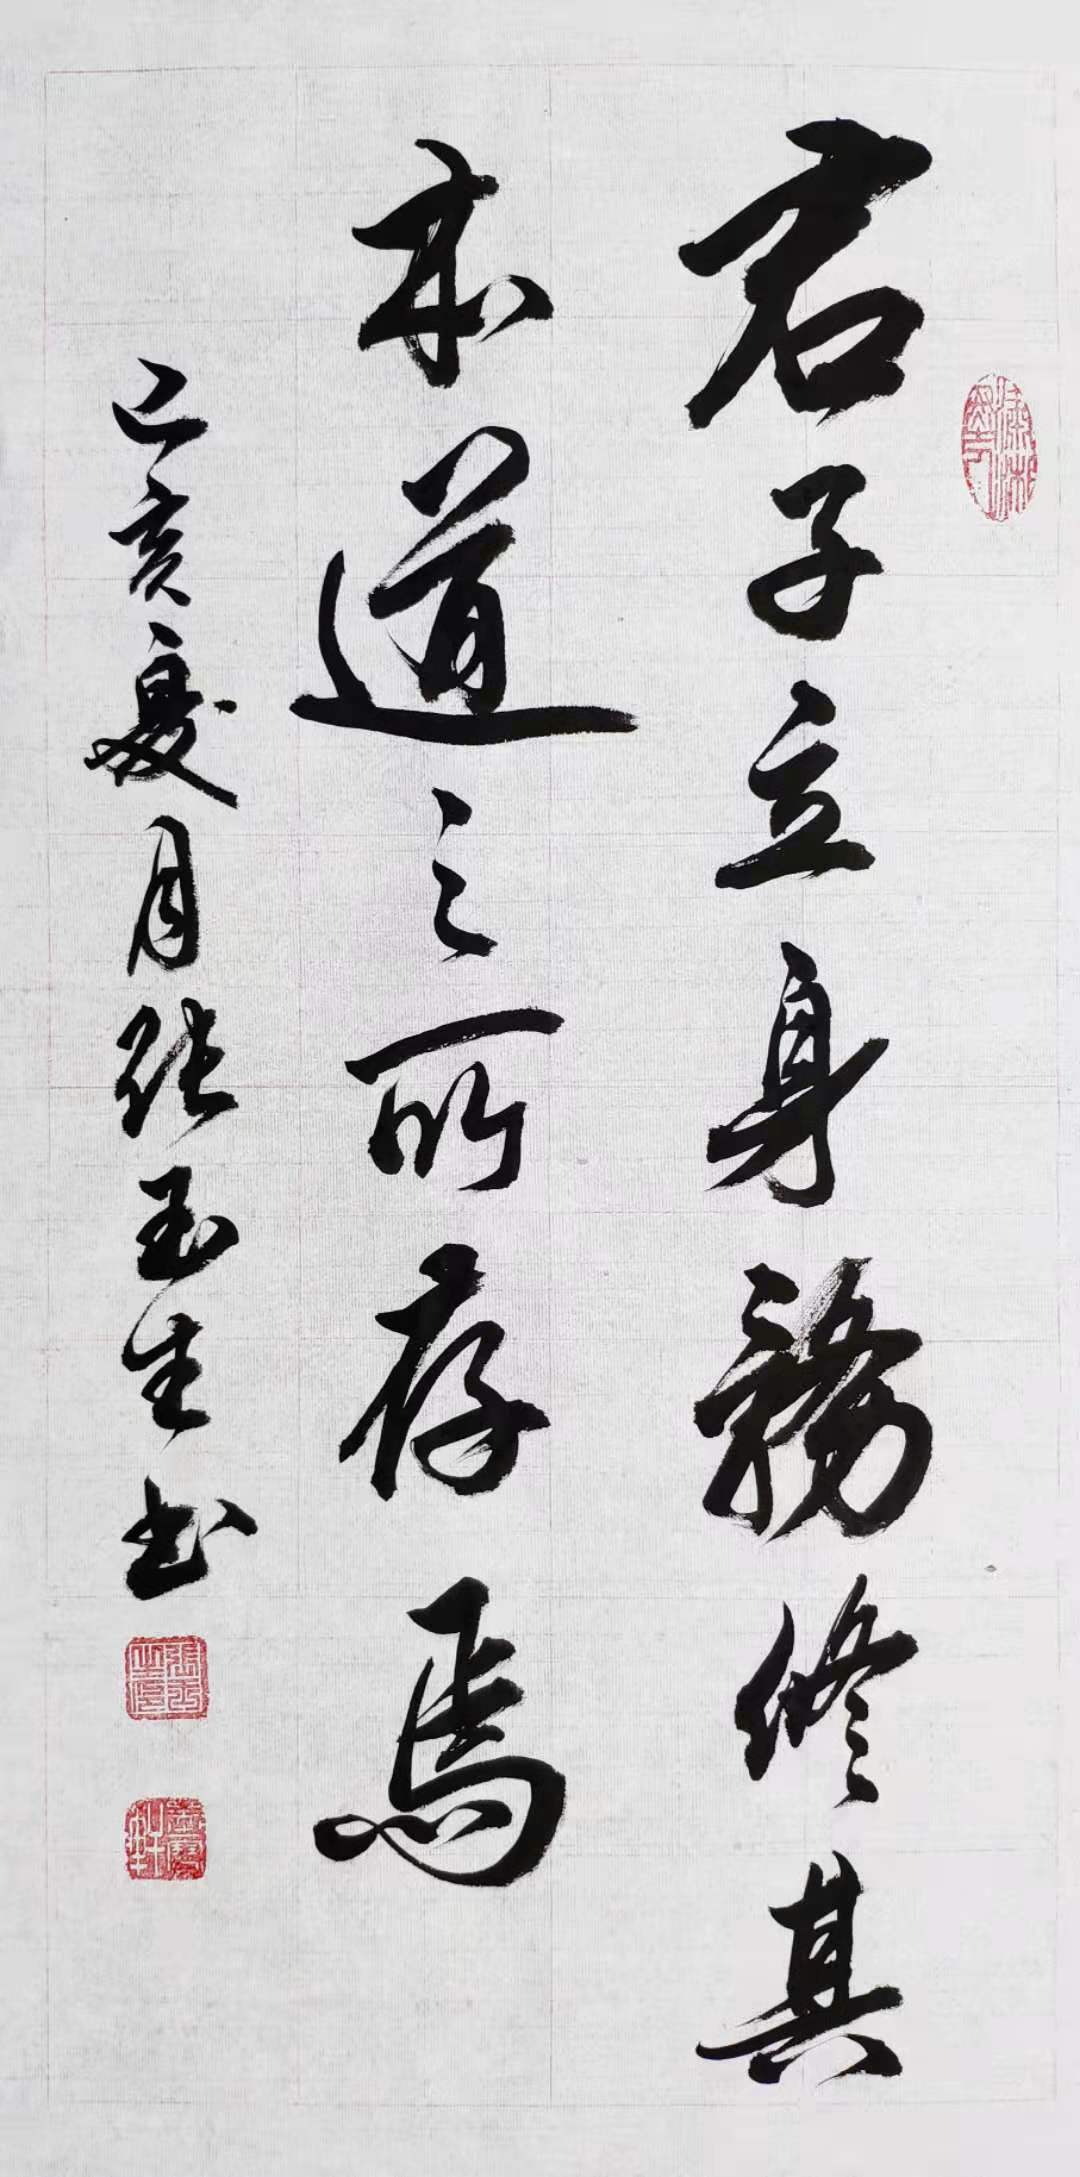 君子立身務修其
本道之所存焉
己亥夏月張玉生书